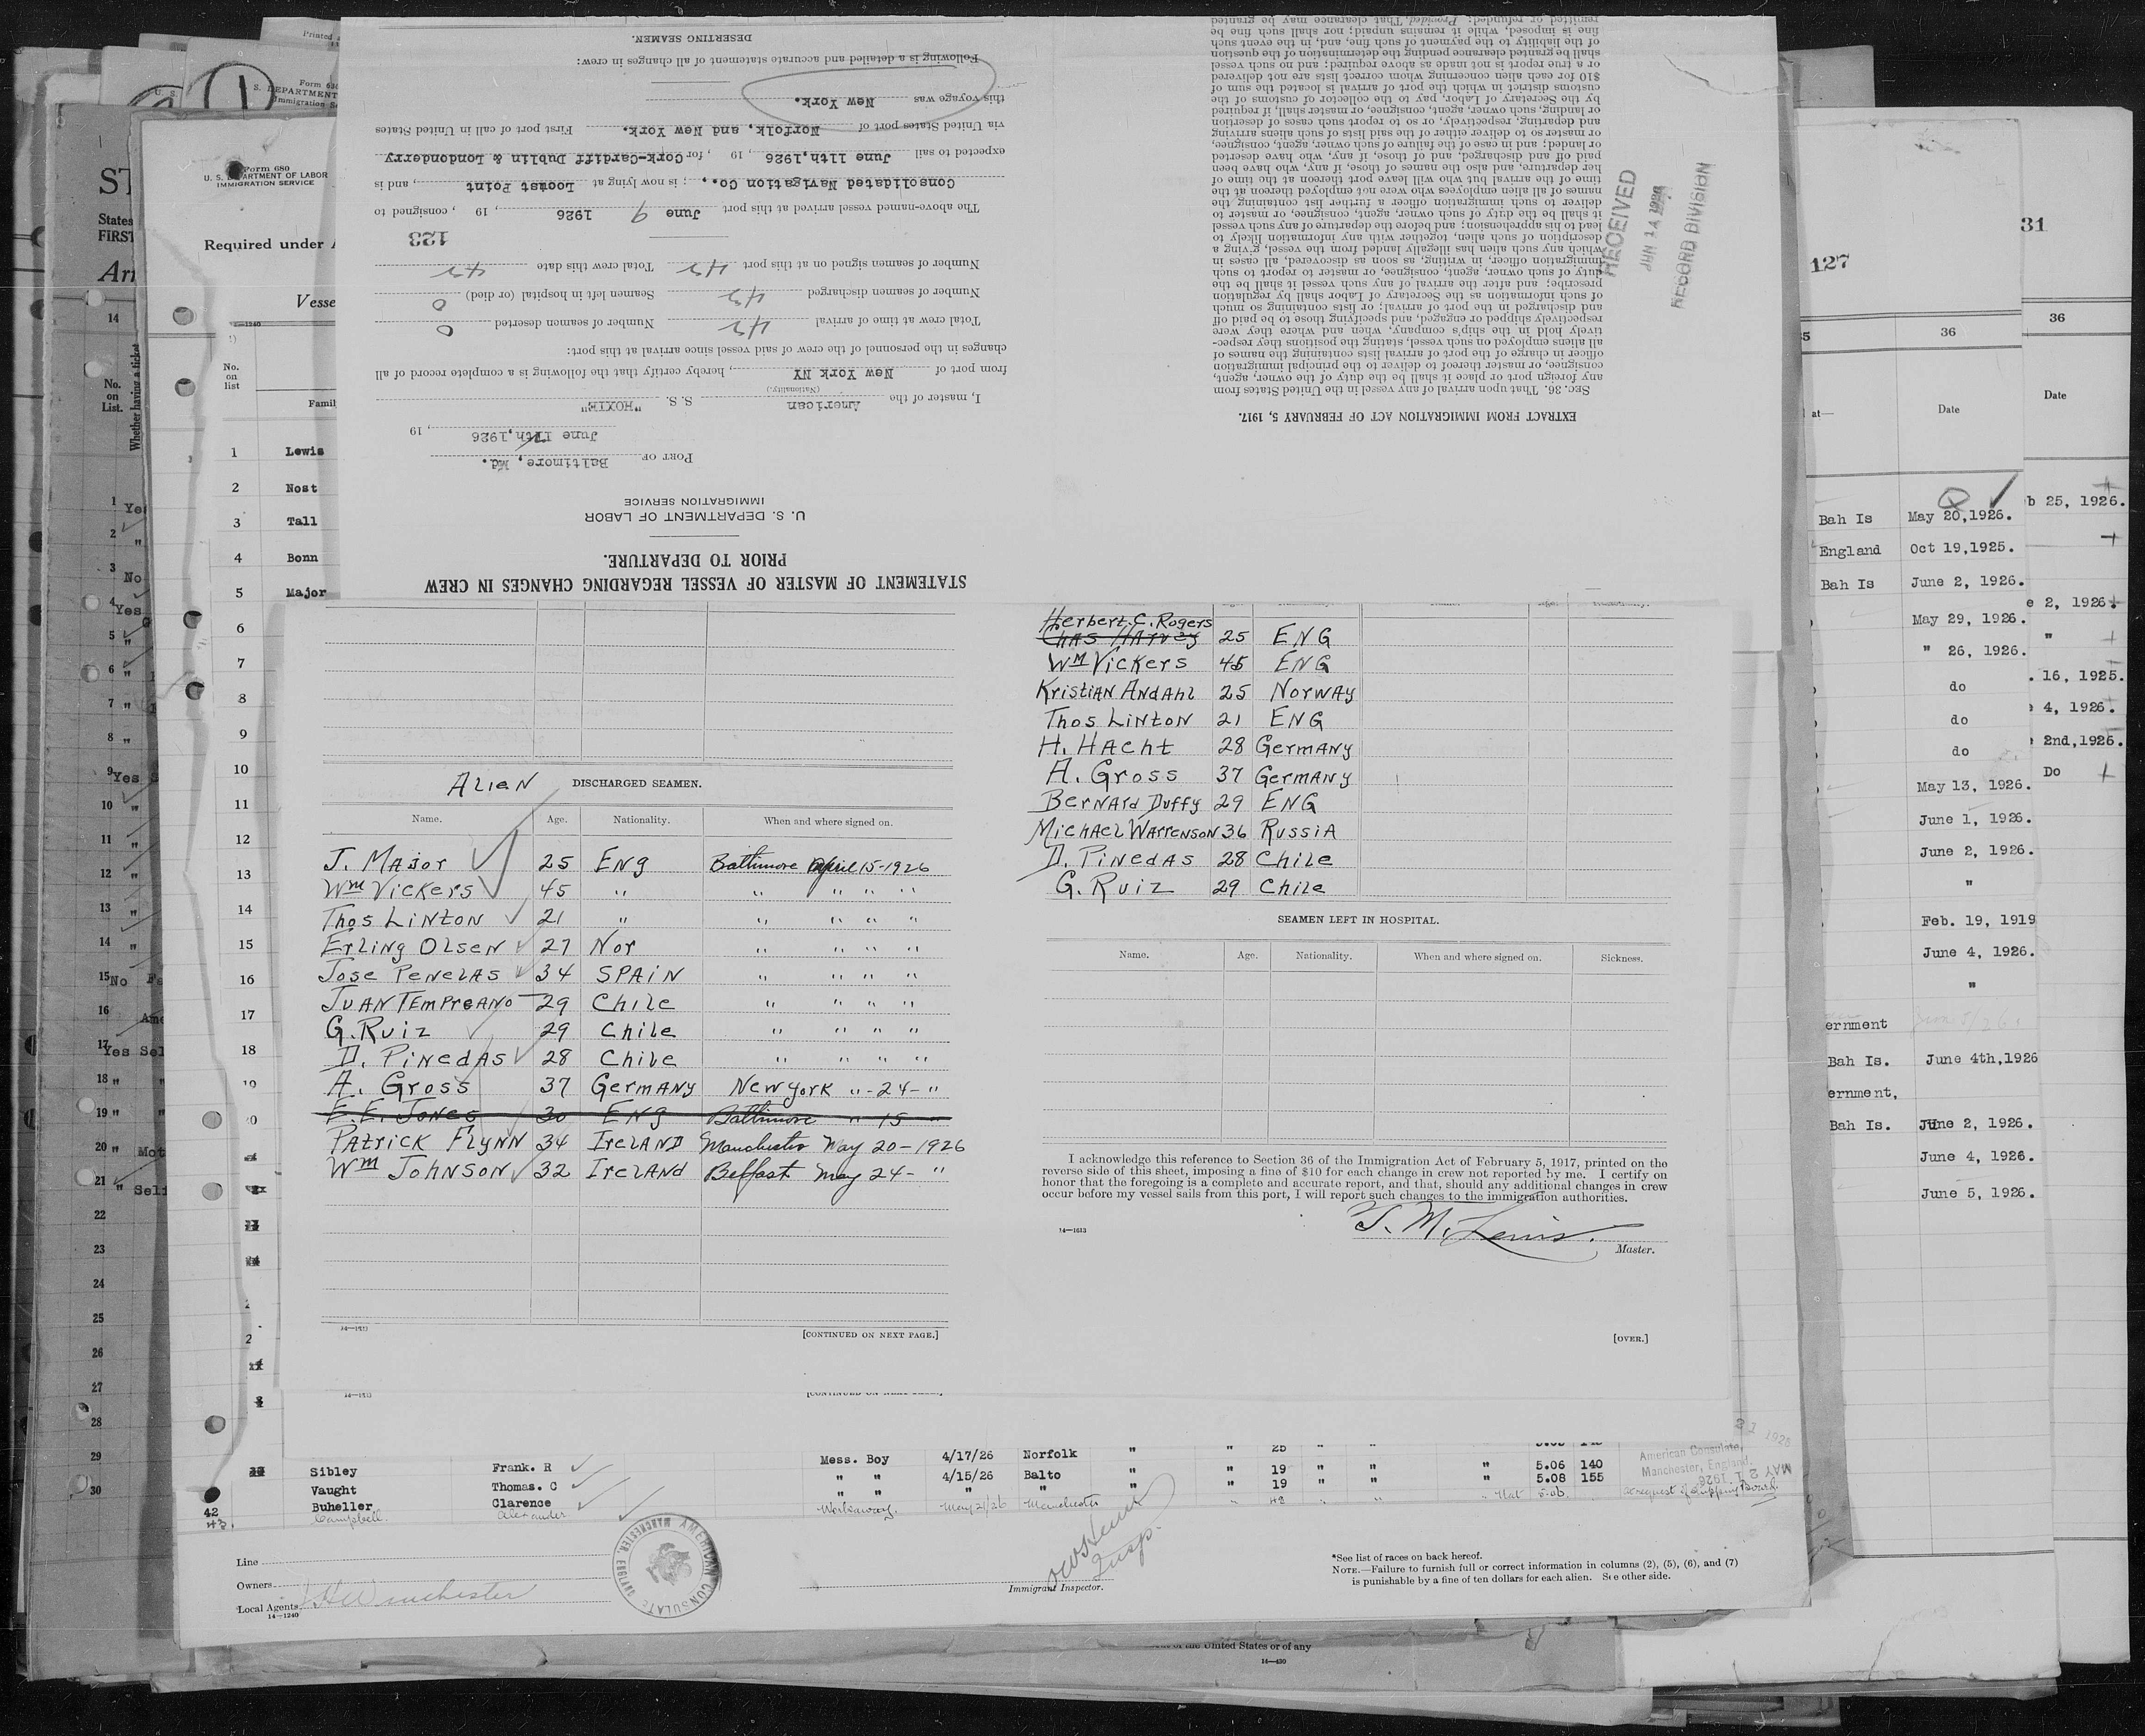 STATEMENT OF MASTER OF VESSEL REGARDING CHANGES IN CREW
PRIOR TO DEPARTURE.
U. S. DEPARTMENT OF LABOR
IMMIGRATION SERVICE
PORT OF Baltimore, Md.
June 11th, 1926, 19
I, master of the American S. S. "HOXIE"
(Nationality.)
from port of New York NY, hereby certify that the following is a complete record of all
changes in the personnel of the crew of said vessel since arrival at this port:
Total crew at time of arrival 42 Number of seamen deserted 0
Number of seamen discharged 42 Seamen left in hospital (or died) 0
Number of seamen signed on at this port 42 Total crew this date 42
123
The above-named vessel arrived at this port June 9 1926, 19 , consigned to
Consolidated Navigation Co., ; is now lying at Locust Point, and is
expected to sail June 11th, 1926, 19 , for Cork-Cardiff Dublin & Londonderry
via United States port of Norfolk, and New York. First port of call in United States
this voyage was New York.
Following is a detailed and accurate statement of all changes in crew:
DESERTING SEAMEN.
EXTRACT FROM IMMIGRATION ACT OF FEBRUARY 5, 1917.
SEC. 36. That upon arrival of any vessel in the United States from
any foreign port or place it shall be the duty of the owner, agent,
consignee, or master thereof to deliver to the principal immigration
officer in charge of the port of arrival lists containing the names of
all aliens employed on such vessel, stating the positions they respec-
tively hold in the ship's company, when and where they were
respectively shipped or engaged, and specifying those to be paid off
and discharged in the port of arrival; or lists containing so much
of such information as the Secretary of Labor shall by regulation
prescribe; and after the arrival of any such vessel it shall be the
duty of such owner, agent, consignee, or master to report to such
immigration officer, in writing, as soon as discovered, all cases in
which any such alien has illegally landed from the vessel, giving a
description of such alien, together with any information likely to
lead to his apprehension; and before the departure of any such vessel
it shall be the duty of such owner, agent, consignee, or master to
deliver to such immigration officer a further list containing the
names of all alien employees who were not employed thereon at the
time of the arrival but who will leave port thereon at the time of
her departure, and also the names of those, if any, who have been
paid off and discharged, and of those, if any, who have deserted
or landed; and in case of the failure of such owner, agent, consignee,
or master so to deliver either of the said lists of such aliens arriving
and departing, respectively, or so to report such cases of desertion
or landing, such owner, agent, consignee, or master shall, if required
by the Secretary of Labor, pay to the collector of customs of the
customs district in which the port of arrival is located the sum of
$10 for each alien concerning whom correct lists are not delivered
or a true report is not made as above required; and no such vessel
shall be granted clearance pending the determination of the question
of the liability to the payment of such fine, and, in the event such
fine is imposed, while it remains unpaid; nor shall such fine be
remitted or refunded: Provided, That clearance may be granted
RECEIVED
JUN 14 1926
RECORD DIVISION
Form 680
U. S. DEPARTMENT OF LABOR
IMMIGRATION SERVICE
Required under
Vesse
No. on list
Famil
1 Lewis
2 Nost
3 Tall
4 Bonn
5 Major
6
7
8
9
10
11
12
13
14
15
16
17
18
Alien DISCHARGED SEAMEN.
Name. Age. Nationality. When and where signed on.
J. Major 25 Eng Baltimore April 15-1926
Wm Vickers 45 " " " " "
Thos Linton 21 " " " " "
Erling Olsen 27 Nor " " " "
Jose Penelas 34 SPAIN " " " "
JUAN TEMPREANO 29 Chile " " " "
G. Ruiz 29 Chile " " " "
D. Pinedas 28 Chile " " " "
A. Gross 37 Germany New York " -24- "
E. E. Jones 30 ENg Baltimore " 15 "
Patrick Flynn 34 Ireland Manchester May 20-1926
Wm Johnson 32 Ireland Belfast May 24- "
14—1213
[CONTINUED ON NEXT PAGE.]
Herbert. C. Rogers
Chas Harvey 25 ENG
Wm Vickers 45 ENG
Kristian Andahl 25 Norway
Thos Linton 21 ENG
H. Hacht 28 Germany
A. Gross 37 Germany
Bernard Duffy 29 ENG
Michael Warrenson 36 Russia
D. Pinedas 28 Chile
G. Ruiz 29 Chile
SEAMEN LEFT IN HOSPITAL.
Name. Age. Nationality. When and where signed on. Sickness.
I acknowledge this reference to Section 36 of the Immigration Act of February 5, 1917, printed on the
reverse side of this sheet, imposing a fine of $10 for each change in crew not reported by me. I certify on
honor that the foregoing is a complete and accurate report, and that, should any additional changes in crew
occur before my vessel sails from this port, I will report such changes to the immigration authorities.
T. M. Lewis.
Master.
[OVER.]
Mess. Boy 4/17/26 Norfolk " " 25
Sibley Frank. R " " 4/15/26 Balto " " 19 " " " 5.06 140
Vaught Thomas. C " " " " " " 19 " " " 5.08 155
42 Buheller Clarence
43 Campbell Alexander Workaway May 21/26 Manchester
American Consulate,
Manchester, England.
MAY 21 1926
at request of Shipping Board.
Line
Owners
Local Agents
14—1240
AMERICAN CONSULATE MANCHESTER, ENGLAND
Insp.
Immigrant Inspector.
*See list of races on back hereof.
NOTE.—Failure to furnish full or correct information in columns (2), (5), (6), and (7)
is punishable by a fine of ten dollars for each alien. See other side.
of the United States or of any
14—430
127
36
Date
Bah Is May 20,1926.
England Oct 19,1925.
Bah Is June 2, 1926.
May 29, 1926.
" 26, 1926.
do
do
do
May 13, 1926.
June 1, 1926.
June 2, 1926.
"
Feb. 19, 1919
June 4, 1926.
"
ernment
Bah Is. June 4th,1926
ernment,
Bah Is. June 2, 1926.
June 4, 1926.
June 5, 1926.
31
36
Date
b 25, 1926.
e 2, 1926.
"
. 16, 1925.
4, 1926.
2nd,1926.
Do